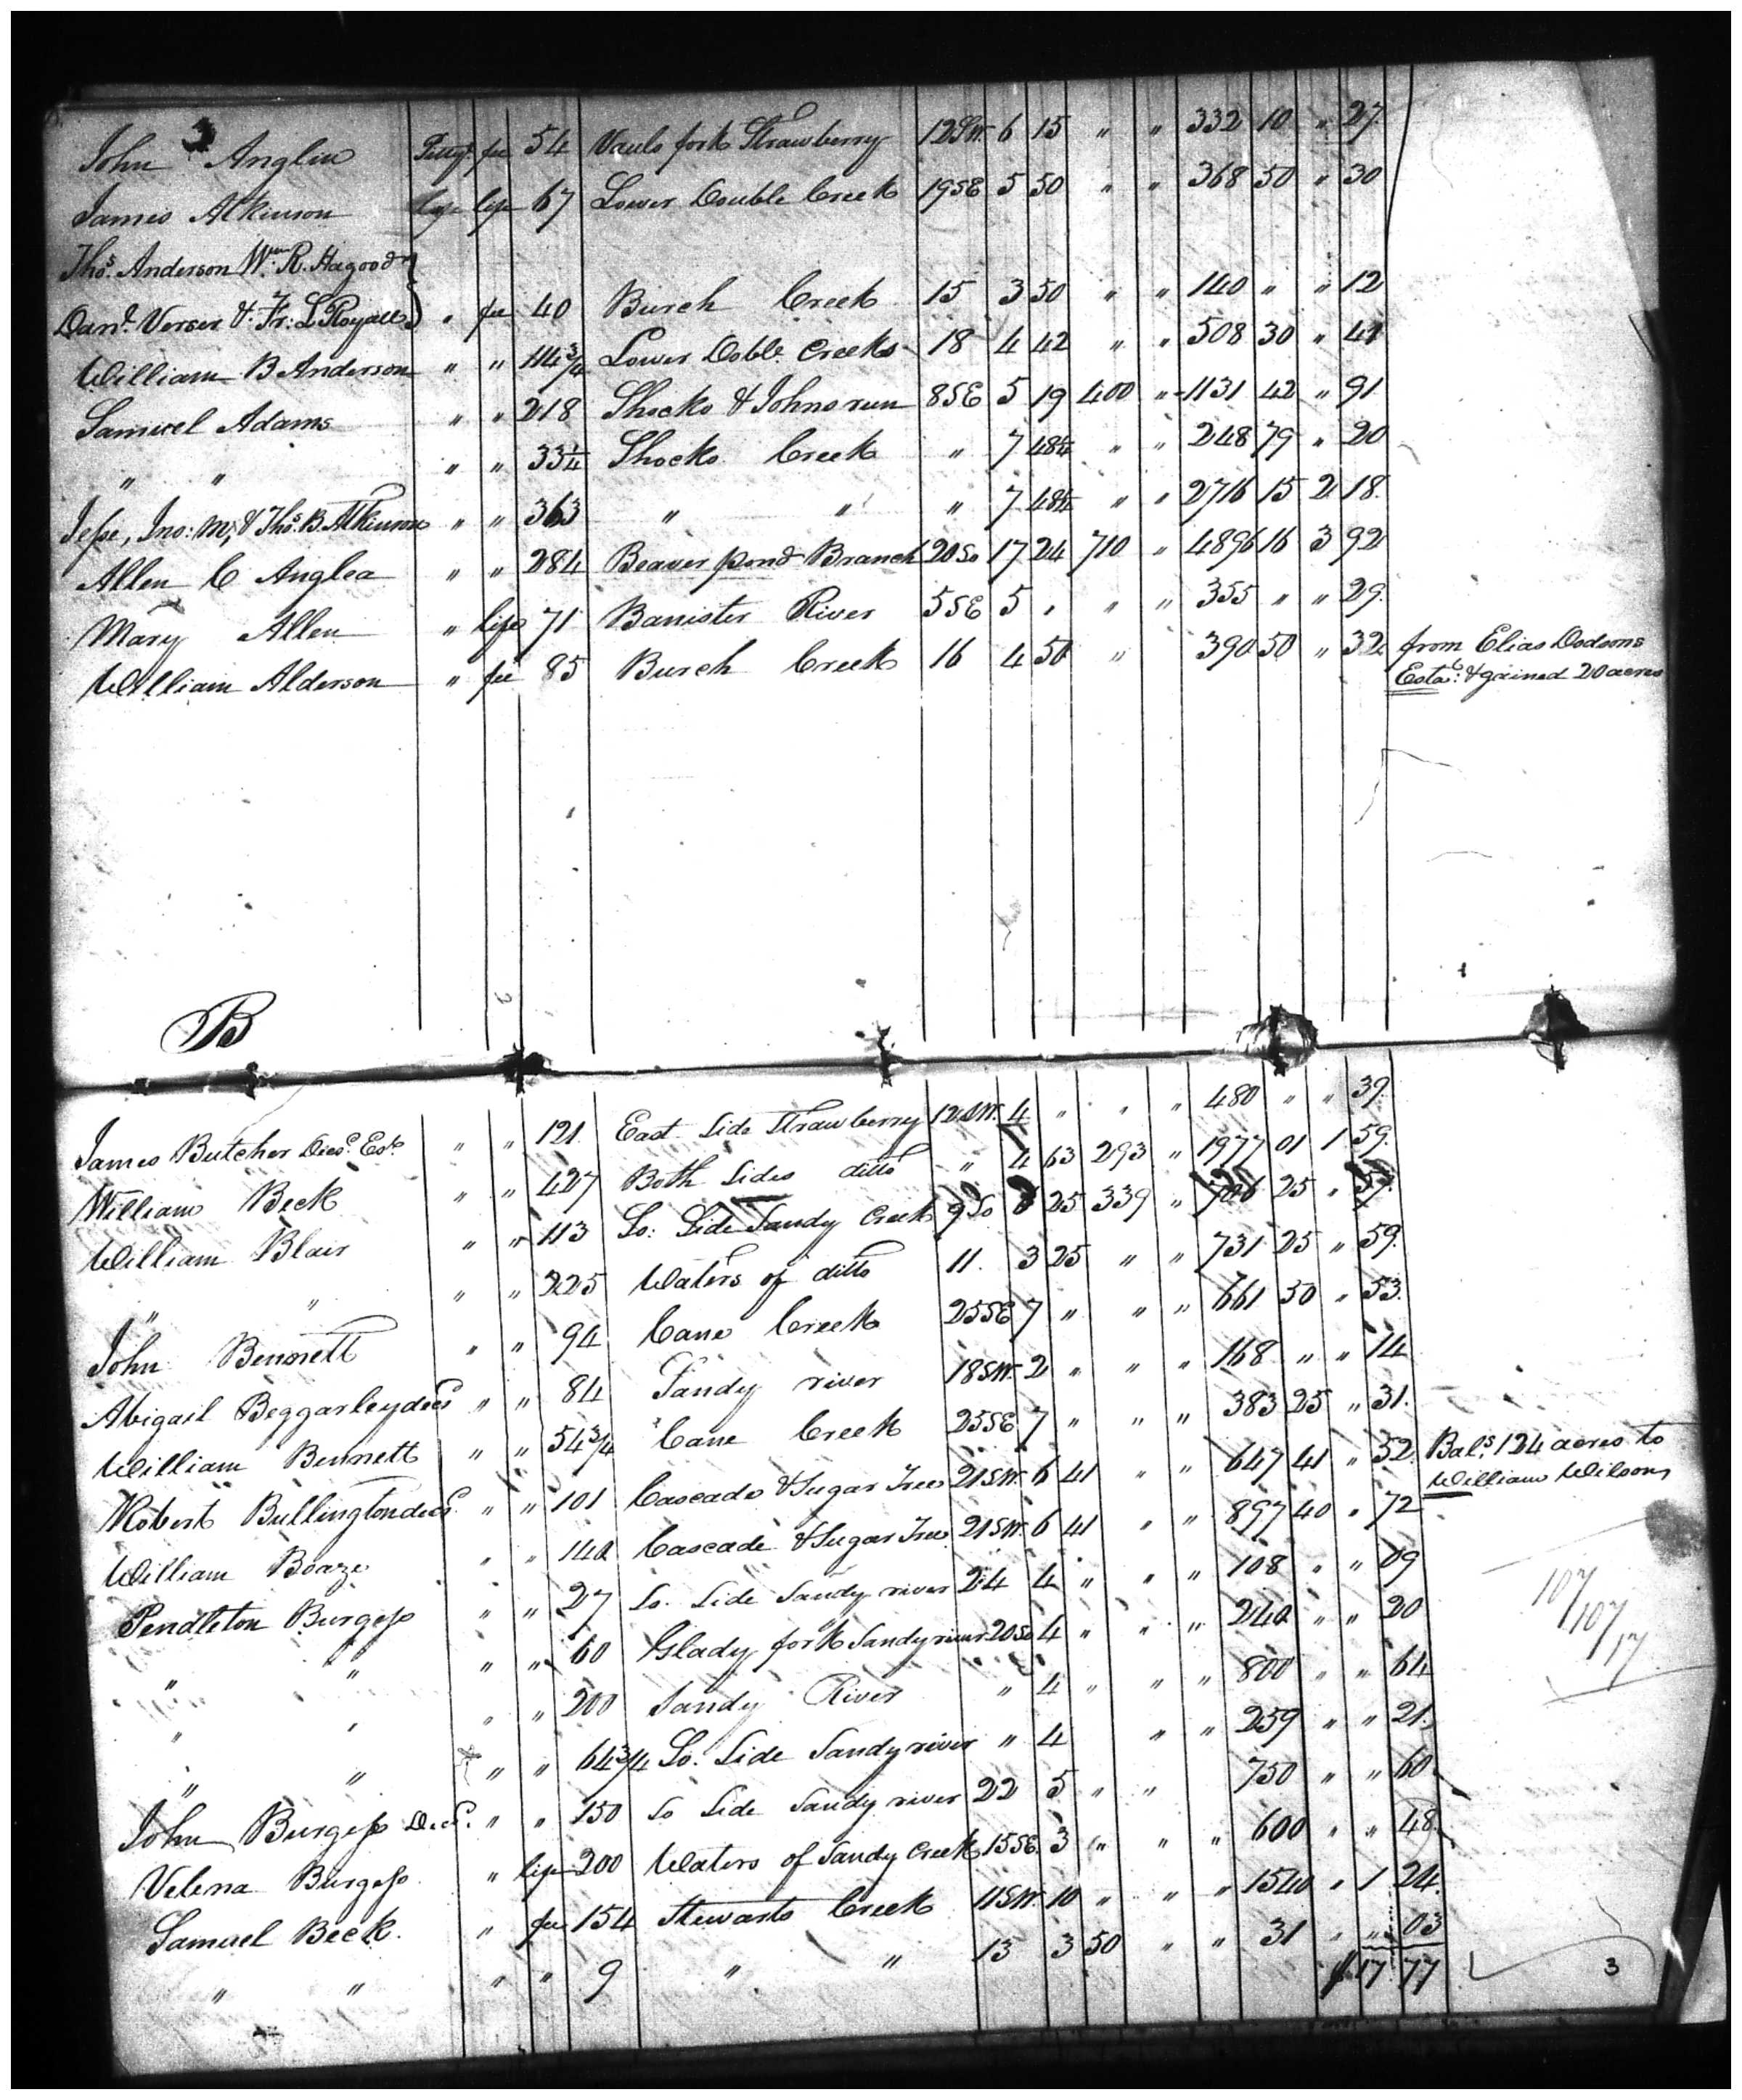 John Anglin Pittsa. fee 54 Vauls fork Strawberry 12 SW. 6 15 " " 332 10 " 27
James Atkinson life 67 Lower Double Creek 19 SE 5 50 " " 368 50 " 30
Thos. Anderson Wm. R. Hagood
Danl. Verser & Fr: L Royall } " fee 40 Burch Creek 15 3 50 " " 140 " " 12
William B Anderson " " 114 3/4 Lower Doble Creek 18 4 42 " " 508 30 " 41
Samuel Adams " " 218 Shocko & Johns run 8 SE 5 19 400 " 1131 42 " 91
" " " " 33 1/4 Shocko Creek " 7 48 1/4 " " 248 79 " 20
Jesse, Jno: M, & Thos. B. Atkinson " " 363 " " " 7 48 1/4 " " 2716 15 2 18
Allen C Anglea " " 284 Beaver pond Branch 20 So 17 24 710 " 4896 16 3 92
Mary Allen " life 71 Banister River 5 SE 5 " " " 355 " " 29
William Alderson " fee 85 Burch Creek 16 4 50 " 390 50 " 32 from Elias Dodsons
Esta: & gained 20 acres
B
James Butcher Decd. Est. " " 121 East Side Strawberry 12 SW. 4 " " " 480 " " 39
William Beck " " 427 Both Sides ditto " 4 63 293 " 1977 01 1 59
William Blair " " 113 So: Side Sandy Creek 9 So 25 339 " 25 " 57
" " " " 225 Waters of ditto 11. 3 25 " " 731 25 " 59
John Bennett " " 94 Cane Creek 25 SE 7 " " " 661 50 " 53
Abigail Beggarley decd " " 84 Sandy river 18 SW. 2 " " " 168 " " 14
William Bennett " " 54 3/4 Cane Creek 25 SE 7 " " " 383 25 " 31
Robert Bullington decd. " " 101 Cascade & Sugar Tree 21 SW. 6 41 " " 647 41 " 52 Bals. 124 acres to
William Wilson
William Boaze " " 140 Cascade & Sugar Tree 21 SW. 6 41 " " 897 40 " 72
Pendleton Burgess " " 27 So. Side Sandy river 24 4 " " " 108 " " 09
" " " " 60 Glady fork Sandy river 20 So 4 " " " 240 " " 20
" " " " 200 Sandy River " 4 " " " 800 " " 64
" " " " 64 3/4 So. Side Sandy river " 4 " " 259 " " 21
John Burgess Decd. " " 150 So Side Sandy river 22 5 " " 750 " " 60
Velena Burgess " life 200 Waters of Sandy Creek 15 SE. 3 " " " 600 " " 48
Samuel Beck. " fee 154 Stewarts Creek 11 SW. 10 " " " 1540 " 1 24
" " " " 9 " " 13 3 50 " " 31 " " 03
$ 17 77 3
107/107/17